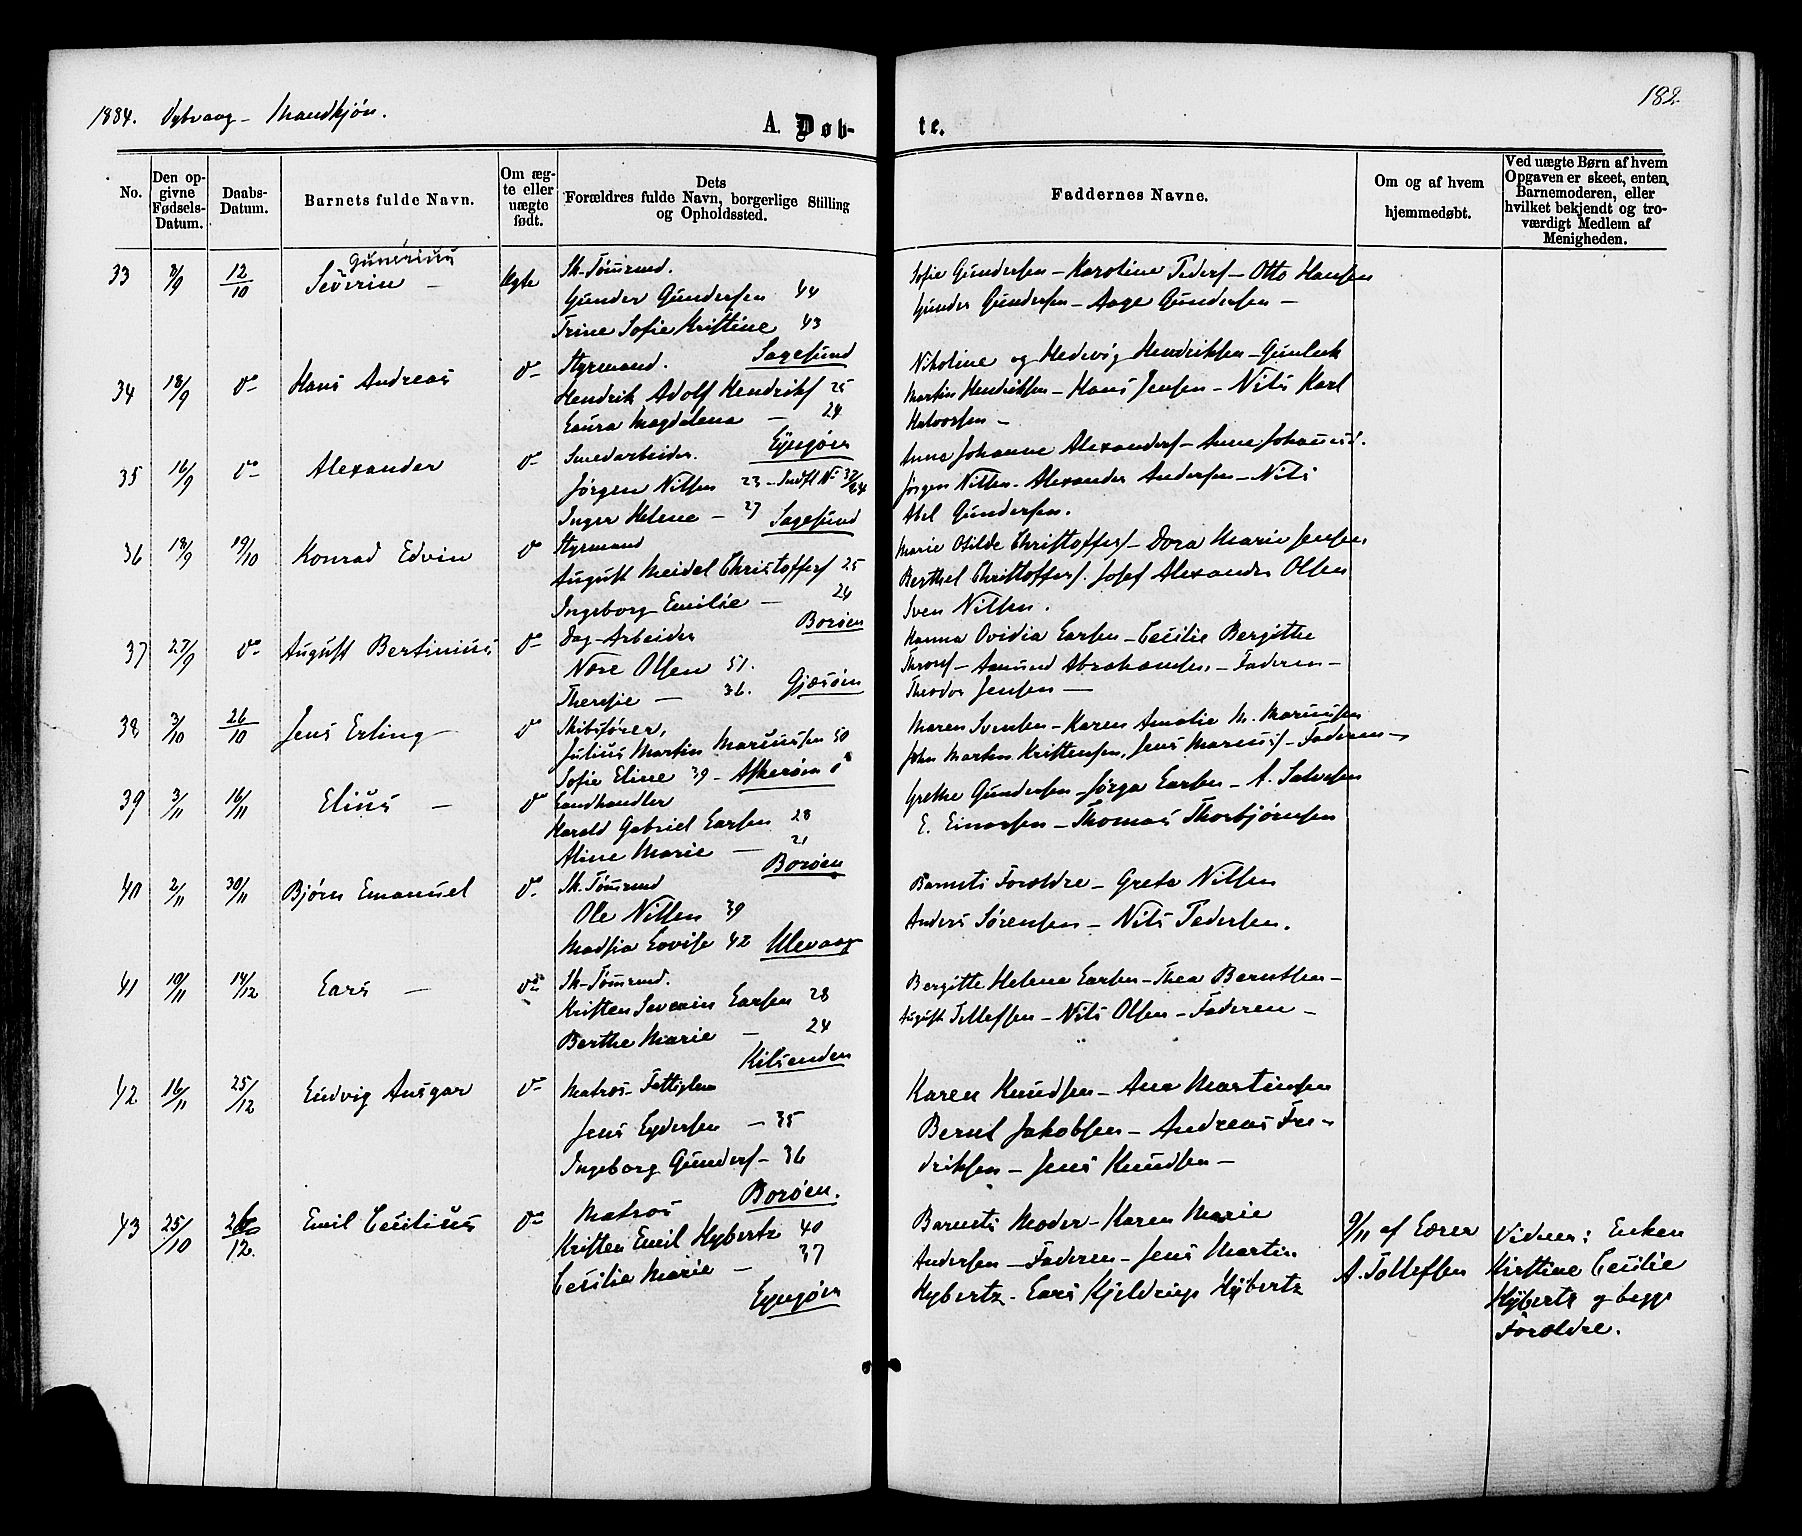 1884. Dybvaag - Mandkjøn.
182.
A. Døb-
te.
No.
Den op-
givne
Fødsels-
Datum.
Daabs-
Datum.
Barnets fulde Navn.
Om æg-
te eller
uægte
født.
Dets
Forældres fulde Navn, borgerlige Stilling
og Opholdssted.
Faddernes Navne.
Om og af hvem
hjemmedøbt.
Ved uægte Børn af hvem
Opgaven er skeet, enten
Barnemoderen, eller
hvilket bekjendt og tro-
værdigt Medlem af
Menigheden.
33 8/9 12/10 Severin Gunerius - Ægte
Sk. Tømrmd.
Gunder Gundersen 44
Trine Sofie Kristine 43
Sagesund
Sofie Gundersen - Karoline Peders - Otto Hansen
Gunder Gundersen - Aage Gundersen -
34 18/9 do Hans Andreas do
Styrmand.
Hendrik Adolf Hendriks 25
Laura Magdalena - 24
Lyngøen
Nikoline og Hedevig Hendriksen - Gunleik
Martin Hendriksen - Hans Jensen - Nils Karl
Halvorsen -
35 16/9 do Alexander do
Smedarbeider.
Jørgen Nilsen 23 - Indfl. No 32/84
Inger Helene - 27
Sagesund
Anna Johanne Alexanders - Anne Johannes.
Jørgen Nilsen - Alexander Andersen - Nils
Abel Gundersen.
36 18/9 19/10 Konrad Edvin do
Styrmand
August Meidel Christoffers 25
Ingeborg Emilie - 24
Borøen
Marie Otilde Christoffers - Dora Marie Jensen,
Berthel Christoffers. Josef Alexander Olsen
Sven Nilsen.
37 27/9 do August Bertinius do
Dag-Arbeider
Nære Olsen 51.
Theresie - 36.
Gjæsøen
Hanna Ovidia Larsen - Cecilie Bergitte
Thors - Aamund Abrahamsen - Faderen -
Theodor Jensen -
38 3/10 26/10 Jens Erling - do
Skibsfører,
Julius Martin Mariussen 50
Sofie Eline 39 - Askerøen
Maren Svensen - Karen Amalie M. Mariussen
John Martin Kristensen, Jens Marius - Faderen -
39 3/11 16/11 Elius - do
Landhandler
Harald Gabriel Larsen 28
Aline Marie - 21
Borøen
Grethe Gundersen - Jørga Larsen - A. Salvesen
E. Einarsen - Thomas Thorbjørnsen
40 2/11 30/11 Bjørn Emanuel do
Sk. Tømrmd
Ole Nilsen 39
Madsia Lovise 42 Ulevaag
Barnets Forældre - Grete Nilsen
Anders Sørensen - Nils Pedersen.
41 10/11 14/12 Lars - do
Sk. Tømrmd.
Kristen Severin Larsen 28
Berthe Marie - 24
Kilsenden
Bergitte Helene Larsen - Thea Berntsen -
August Tellefsen - Nils Olsen - Faderen -
42 16/11 25/12 Ludvig Ansgar do
Matros - Fattiglem
Jens Lydersen - 35
Ingeborg Gunders - 36
Borøen.
Karen Knudsen - Ane Martinsen
Bernt Jakobsen - Andreas Fre-
driksen - Jens Knudsen -
43 25/10 26/12. Emil Cecilius do
Matros
Kristen Emil Hybertz 40
Cecilie Marie - 37
Lyngøen
Barnets Moder - Karen Marie
Andersen - Faderen - Jens Martin
Hybertz - Lars Kjeldrup Hybertz
9/11 af Lærer
A. Tollefsen
Vidner: Enken
Kirstine Cecilie
Hybertz og begge
Forældre.